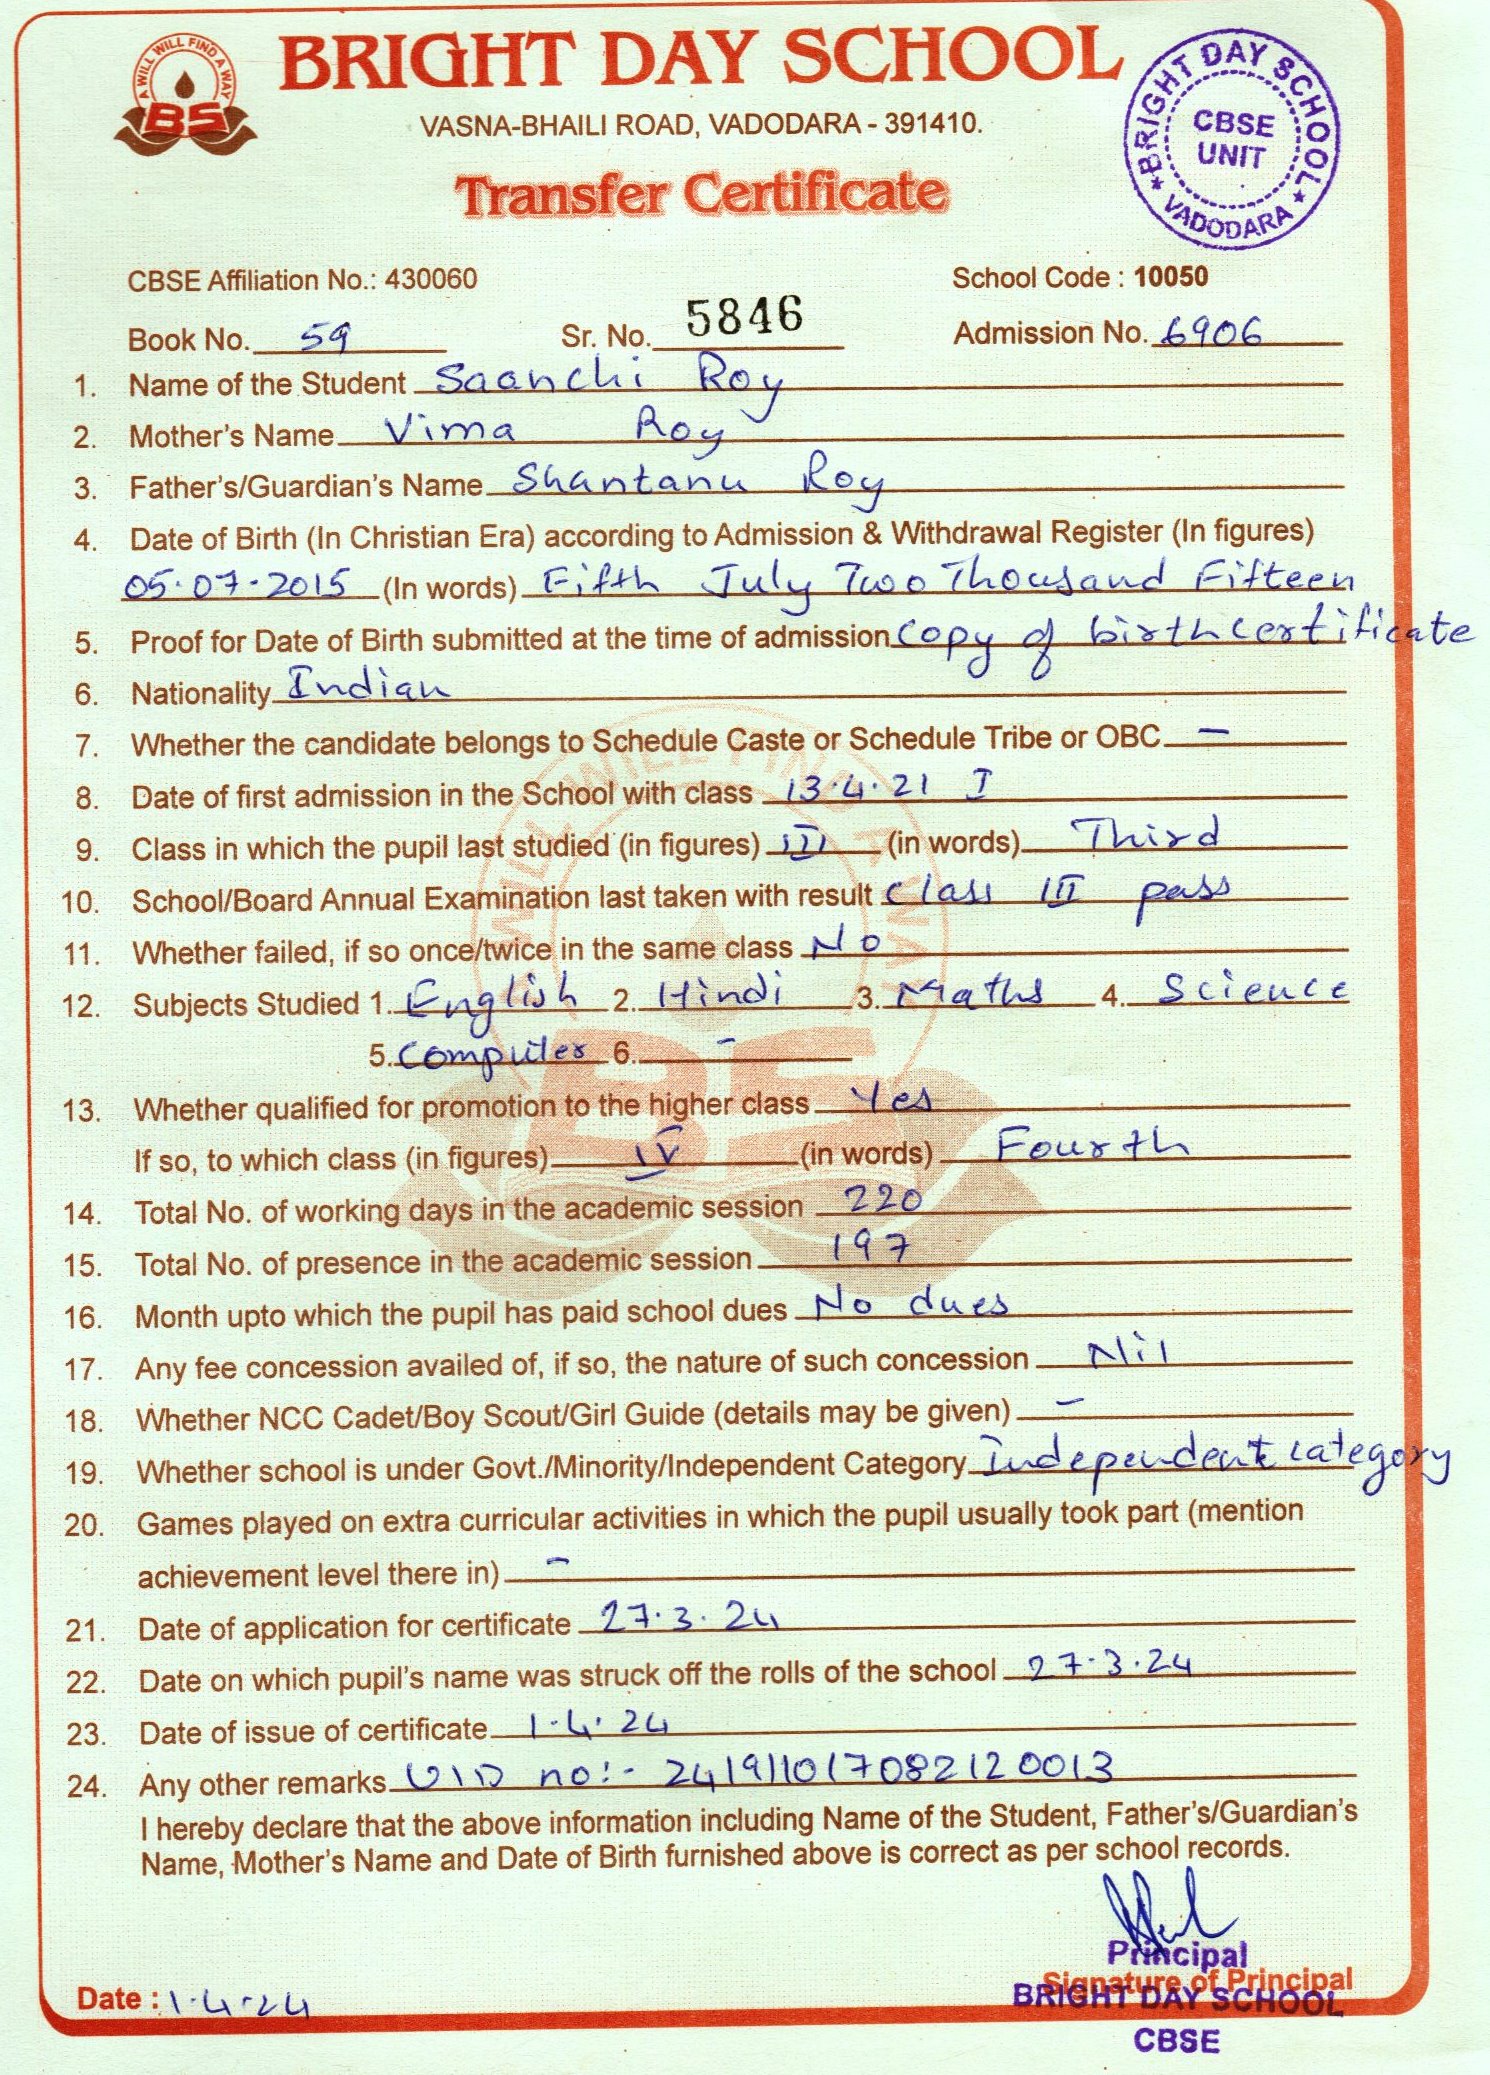 A WILL WILL FIND A WAY
BS
BRIGHT DAY SCHOOL
VASNA-BHAILI ROAD, VADODARA - 391410.
Transfer Certificate
BRIGHT DAY SCHOOL
CBSE
UNIT
VADODARA
CBSE Affiliation No.: 430060 School Code : 10050
Book No. 59 Sr. No. 5846 Admission No. 6906
1. Name of the Student Saanchi Roy
2. Mother's Name Vima Roy
3. Father's/Guardian's Name Shantanu Roy
4. Date of Birth (In Christian Era) according to Admission & Withdrawal Register (In figures)
05.07.2015 (In words) Fifth July Two Thousand Fifteen
5. Proof for Date of Birth submitted at the time of admission Copy of birth certificate
6. Nationality Indian
7. Whether the candidate belongs to Schedule Caste or Schedule Tribe or OBC -
8. Date of first admission in the School with class 13.4.21 I
9. Class in which the pupil last studied (in figures) III (in words) Third
10. School/Board Annual Examination last taken with result Class III pass
11. Whether failed, if so once/twice in the same class No
12. Subjects Studied 1. English 2. Hindi 3. Maths 4. Science
5. Computer 6. -
13. Whether qualified for promotion to the higher class Yes
If so, to which class (in figures) IV (in words) Fourth
14. Total No. of working days in the academic session 220
15. Total No. of presence in the academic session 197
16. Month upto which the pupil has paid school dues No dues
17. Any fee concession availed of, if so, the nature of such concession Nil
18. Whether NCC Cadet/Boy Scout/Girl Guide (details may be given) -
19. Whether school is under Govt./Minority/Independent Category Independent category
20. Games played on extra curricular activities in which the pupil usually took part (mention
achievement level there in) -
21. Date of application for certificate 27.3.24
22. Date on which pupil's name was struck off the rolls of the school 27.3.24
23. Date of issue of certificate 1.4.24
24. Any other remarks UID no:- 241911017082120013
I hereby declare that the above information including Name of the Student, Father's/Guardian's
Name, Mother's Name and Date of Birth furnished above is correct as per school records.
Principal
Signature of Principal
BRIGHT DAY SCHOOL
CBSE
Date : 1.4.24